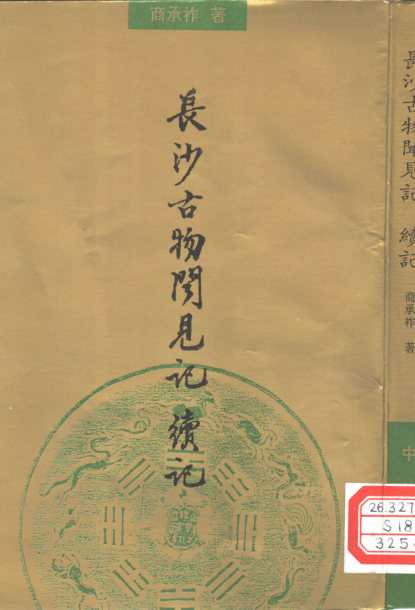 商承祚 著
長沙古物聞見記 續記
長沙古物聞見記 續記
商承祚 著
中
26.327
S 18
325